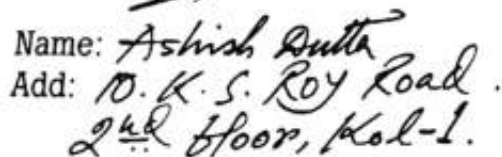 Name: Ashish Dutta
Add: 10. K. S. Roy Road.
2nd floor, Kol-1.